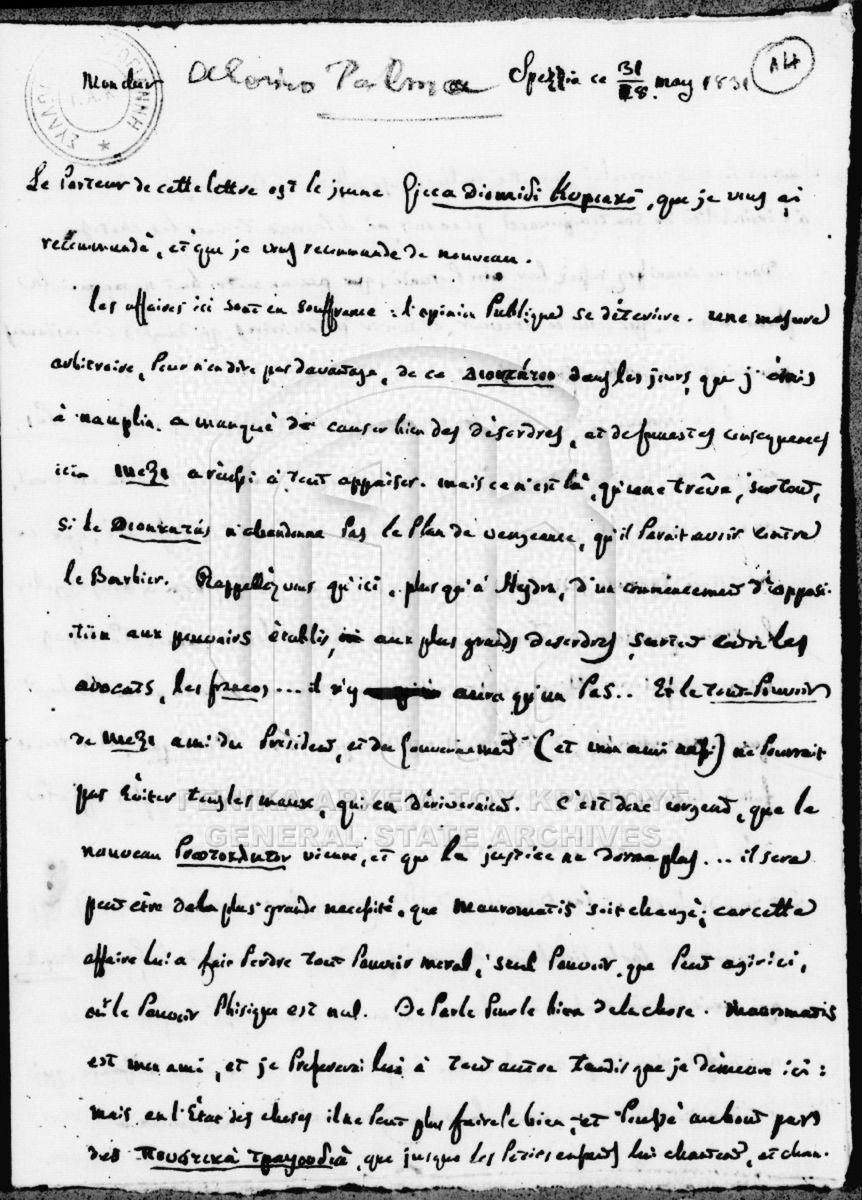 Monsieur Alerino Palma Spezzia ce 31/18. may 1831 A44
Le Porteur de cette lettre est le jeune Gicca Diomidi Κυριακό, que je vous ai
recommandé, et que je vous recommande de nouveau.
les affaires ici sont en souffrance : l'opinion Publique se déteriore. une mesure
arbitraire, pour n'en dire pas davantage, de ce Διοικάτου dans les jours, que j'étais
à nauplia, a manqué de causer bien des désordres, et de funestes consequences
ici. Mexi a réussi à tout appaiser. mais ce n'est là, qu'une trêve, surtout,
si le Διοικατάς n'abandonne pas le Plan de vengeance, qu'il Parait avoir contre
le Barbier. Rappellez vous qu'ici, plus qu'à Hydra, d'un commencement d'opposi-
ition aux pouvoirs établis, aux plus grands desordres, surtout contre les
avocats, les francos ... il n'y aura qu'un Pas.. Et le tout-Pouvoir
de Mexi ami du Président, et du Gouvernement (et mon ami aussi) ne Pourrait
pas Eviter tous les maux, qui en dériveraient. C'est donc urgent, que le
nouveau Πρωτοκλητον vienne, et que la justice ne dorme plus ... il sera
peut être de la plus grande necessité, que Mauromatis soit changé ; car cette
affaire lui a fait Perdre tout Pouvoir moral, seul Pouvoir, que Peut agir ici,
où le Pouvoir Phisique est nul. Je Parle Pour le bien de la chose. Mauromatis
est mon ami, et je Prefererai lui à tout autre tandis que je demeure ici :
mais en l'État des choses il ne Peut plus faire le bien, et Poussé au bout par
des πουστικὰ τραγουδιὰ, que jusque les Petits enfants lui chantent, et chan-
ΓΕΝΙΚΑ ΑΡΧΕΙΑ ΤΟΥ ΚΡΑΤΟΥΣ
GENERAL STATE ARCHIVES